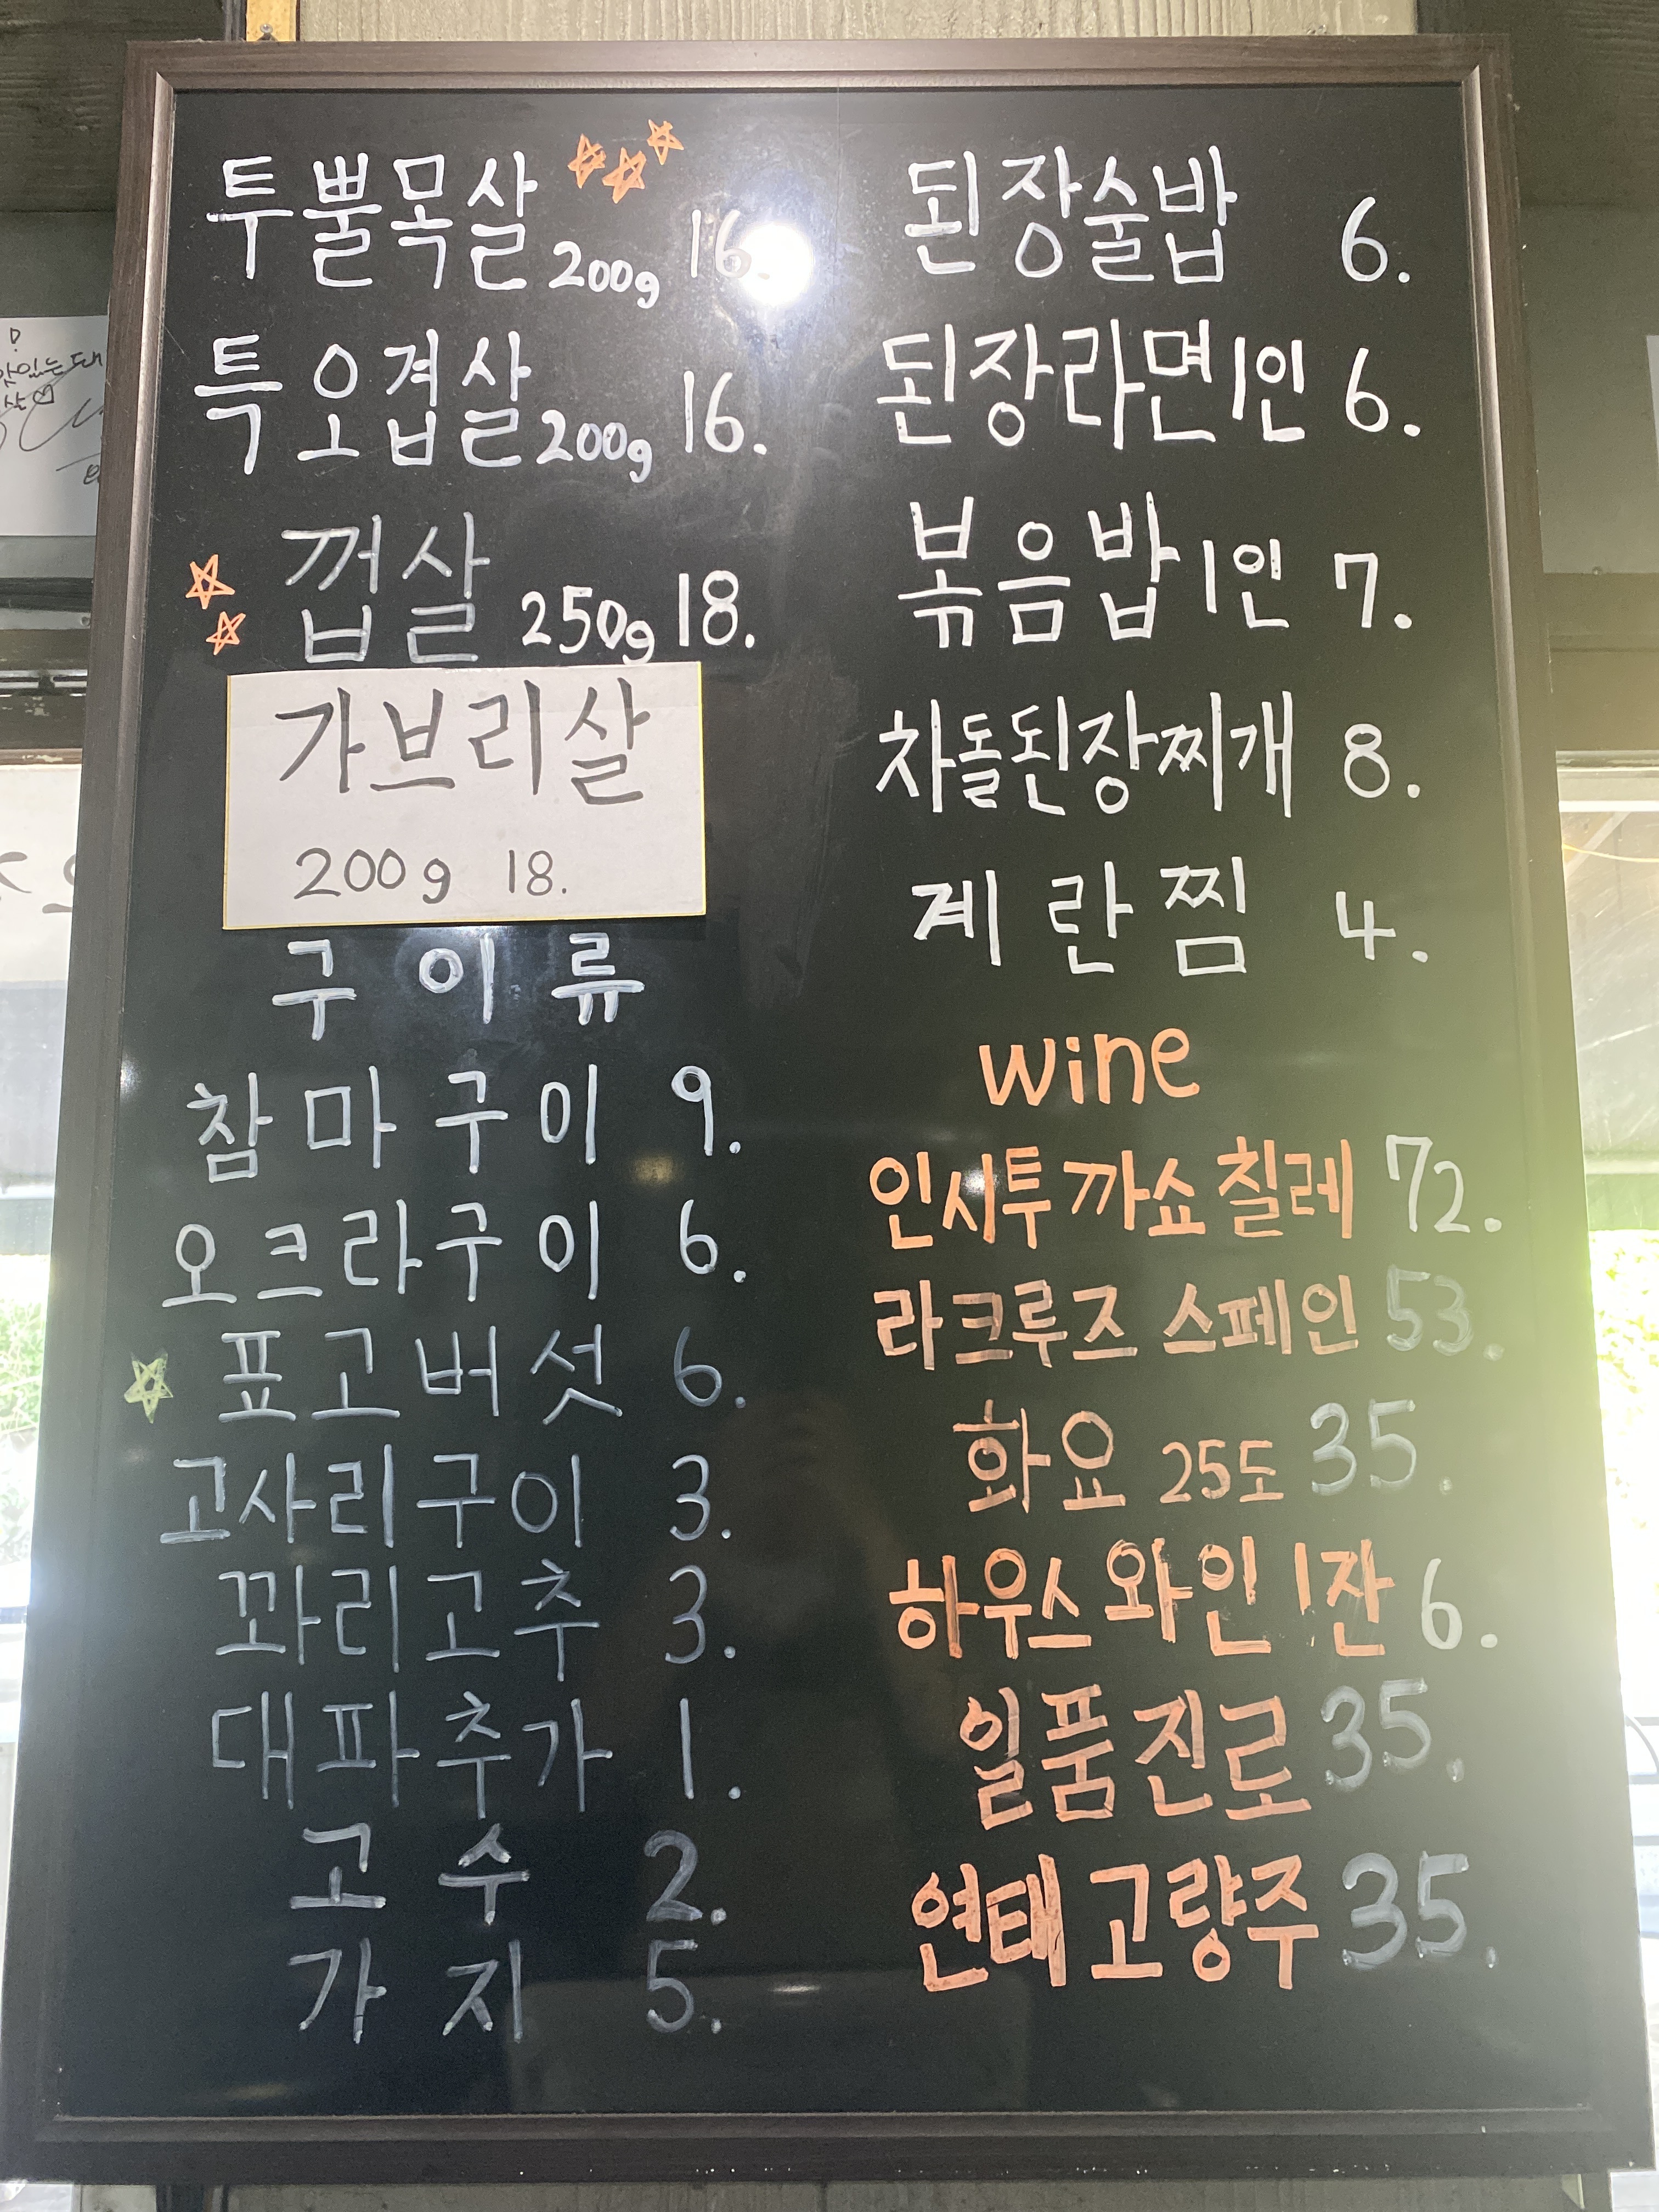 투뿔목살 200g 16.
특오겹살 200g 16.
껍살 250g 18.
가브리살
200g 18.
구이류
참마구이 9.
오크라구이 6.
표고버섯 6.
고사리구이 3.
꽈리고추 3.
대파추가 1.
고수 2.
가지 5.
된장술밥 6.
된장라면 1인 6.
볶음밥 1인 7.
차돌된장찌개 8.
계란찜 4.
wine
인시투 까쇼 칠레 72.
라크루즈 스페인 53.
화요 25도 35.
하우스 와인 1잔 6.
일품진로 35.
연태고량주 35.